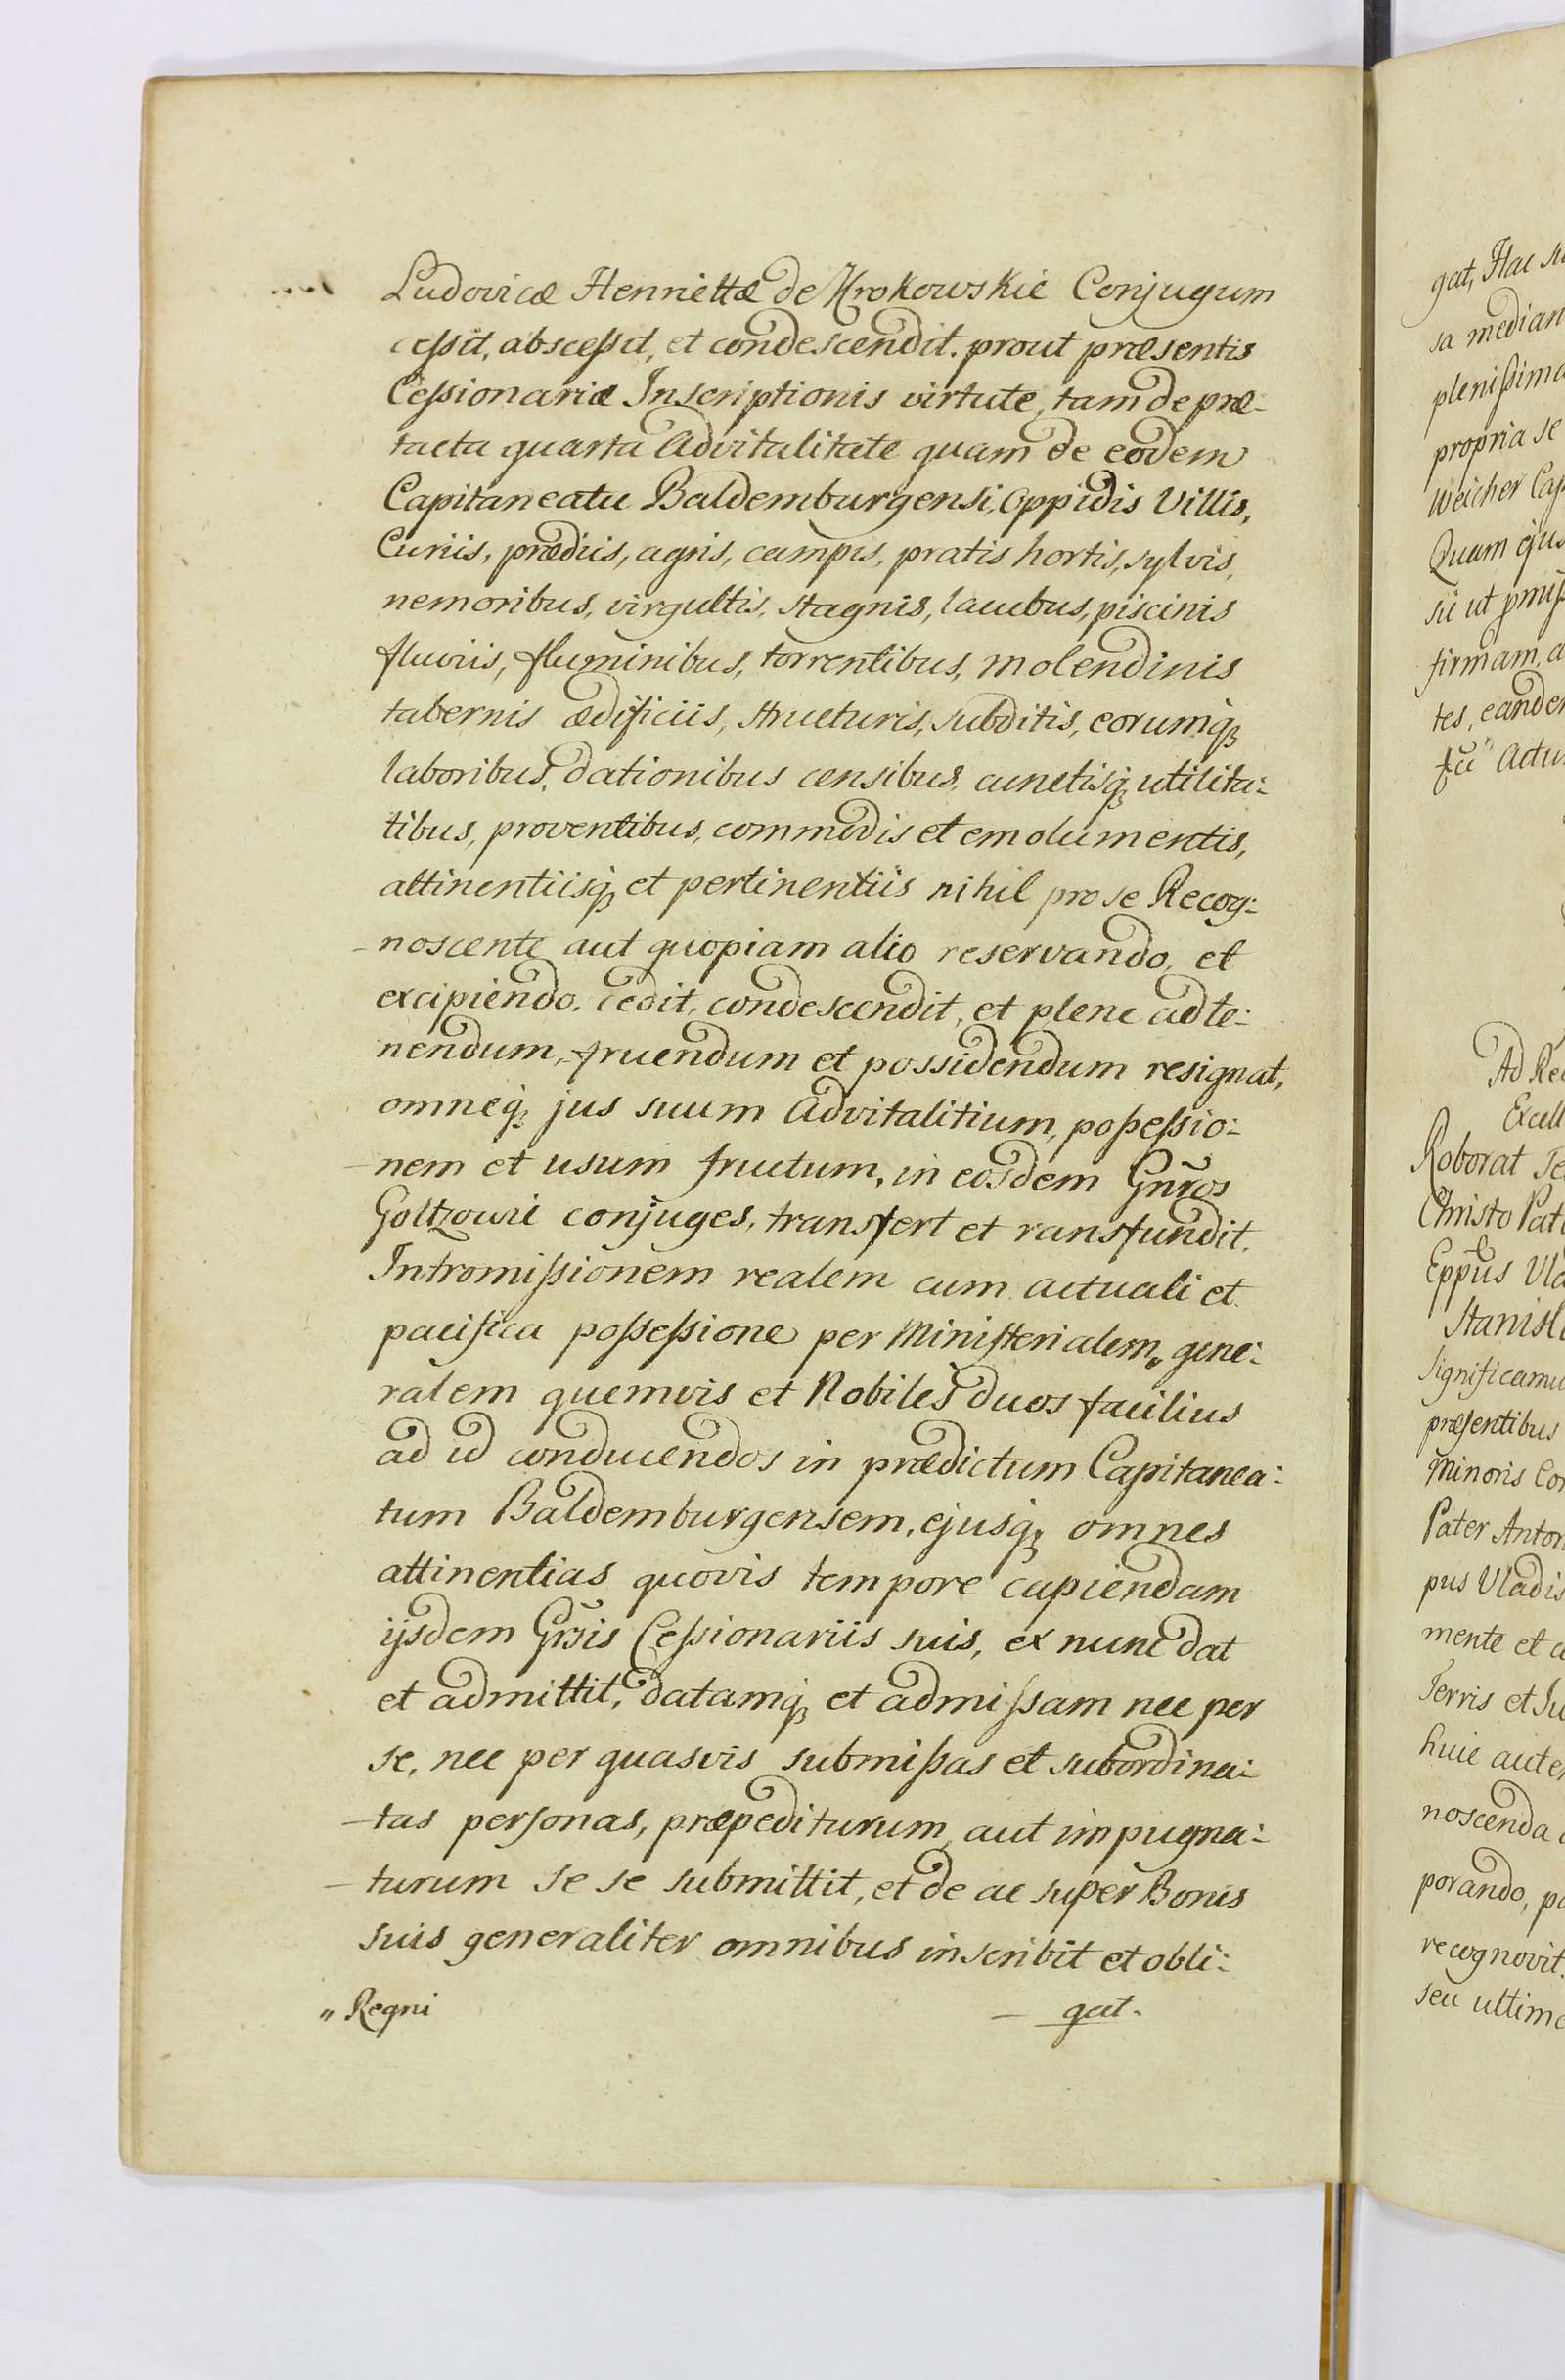 Ludovicæ Henriettæ de Krokowskie Conjugum
cessit, abscessit, et condescendit. prout præsentis
Cessionariæ Inscriptionis virtute, tam de præ-
tacta quarta Advitalitate quam de eodem
Capitaneatu Baldemburgensi, Oppidis Villis,
Curiis, prædiis, agris, campis, pratis hortis, sylvis,
nemoribus, virgultis, stagnis, lacubus, piscinis
fluviis, fluminibus, torrentibus, molendinis
tabernis ædificiis, structuris, subditis, eorumq;
laboribus, dationibus censibus, cunctisq; utilita:
tibus, proventibus, commodis et emolumentis,
attinentiisq; et pertinentiis nihil pro se Recog:
-noscente aut quopiam alio reservando, et
excipiendo. cedit, condescendit, et plene ad te:
nendum, fruendum et possidendum resignat,
omneq; jus suum Advitalitium, possessio:
-nem et usum fructum, in eosdem Gnros
Goltzowie conjuges, transfert et ransfundit.
Intromissionem realem cum actuali et
pacifica possessione per Ministerialem „ gene:
ralem quemvis et Nobiles duos facilius
ad id conducendos in prædictum Capitanea:
tum Baldemburgensem, ejusq; omnes
attinentias quovis tempore capiendam
ijsdem Grsis Cessionariis suis, ex nunc dat
et admittit, datamq; et admissam nec per
se, nec per quasvis submissas et subordina:
-tas personas, præpediturum aut impugna:
-turum se se submittit, et de ac super Bonis
suis generaliter omnibus inscribit et obli:
„ Regni
- gat.
gat, Hac
sa median
plenissima
propria se
Weicher Cap
Quam ejus
firmam, a
tes, eandem
Actu
Ad Re
Excell
Roborat Te
Christo Pat
Eppus Vla
Stanisl
significamu
præsentibus
Minoris Cor
Pater Anton
pus Vladis
mente et c
Terris et Ju
huic aute
noscenda
porando, pe
recognovit
seu ultima